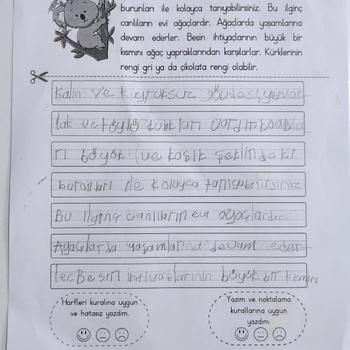 burunları ile kolayca tanıyabilirsiniz. Bu ilginç
canlıların evi ağaçlardır. Ağaçlarda yaşamlarına
devam ederler. Besin ihtiyaçlarının büyük bir
kısmını ağaç yapraklarından karşılarlar. Kürklerinin
rengi gri ya da çikolata rengi olabilir.
Kalın ve kuyruksuz gövdesi, yuvar
lak ve tüylü
rı büyük ve kaşık şeklindeki
burunları ile kolayca tanıyabilirsiniz
Bu ilginç canlıların evi ağaçlardır.
Ağaçlarda yaşamlarına devam eder
ler. Besin ihtiyaçlarının büyük bir kısmını
Harfleri kuralına uygun
ve hatasız yazdım.
Yazım ve noktalama
kurallarına uygun
yazdım.